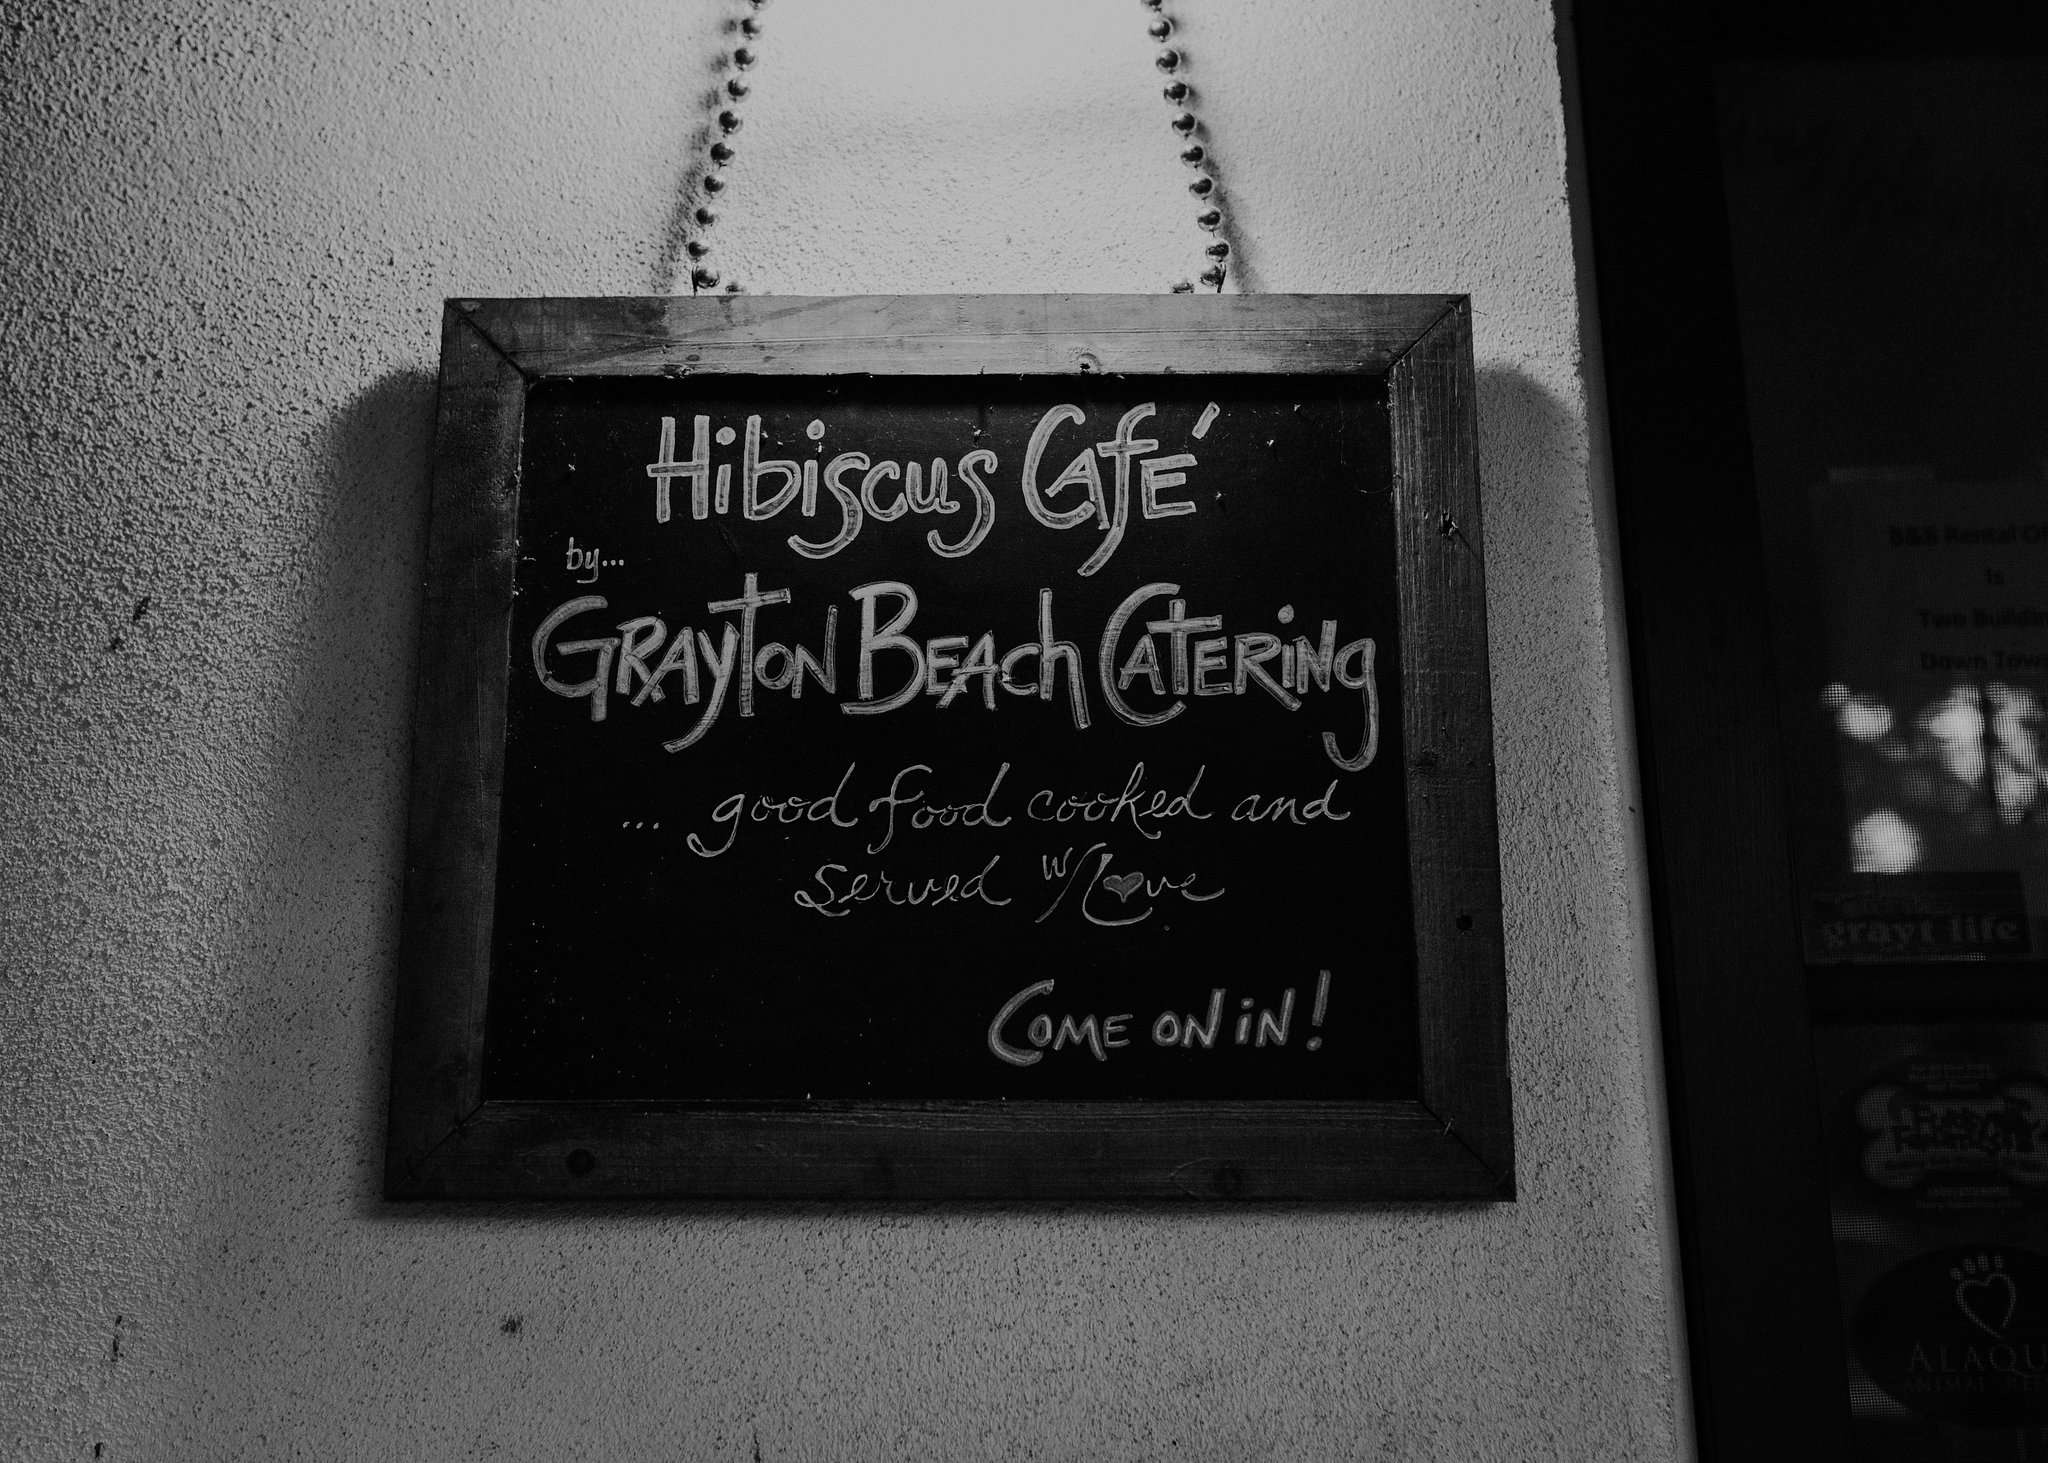 Hibiscus Café
by...
Grayton Beach Catering
... good food cooked and
served w/Love
Come on in!
B&B Rental
Is
Two
Down
grayt life
ALAQU